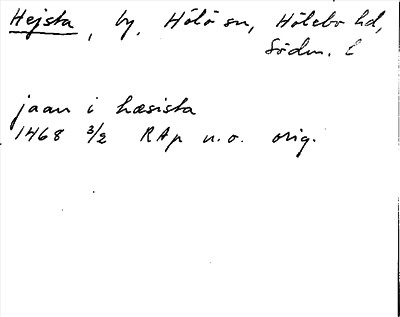 Hejsta, by, Hölö sn, Hölebo hd,
Södm. l
jaan i hæsista
1468 3/2 RAp u.o. orig.